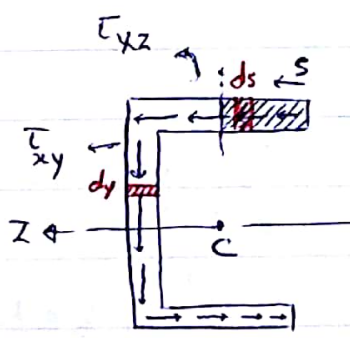 τxz
ds
S
τxy
dy
Z
C